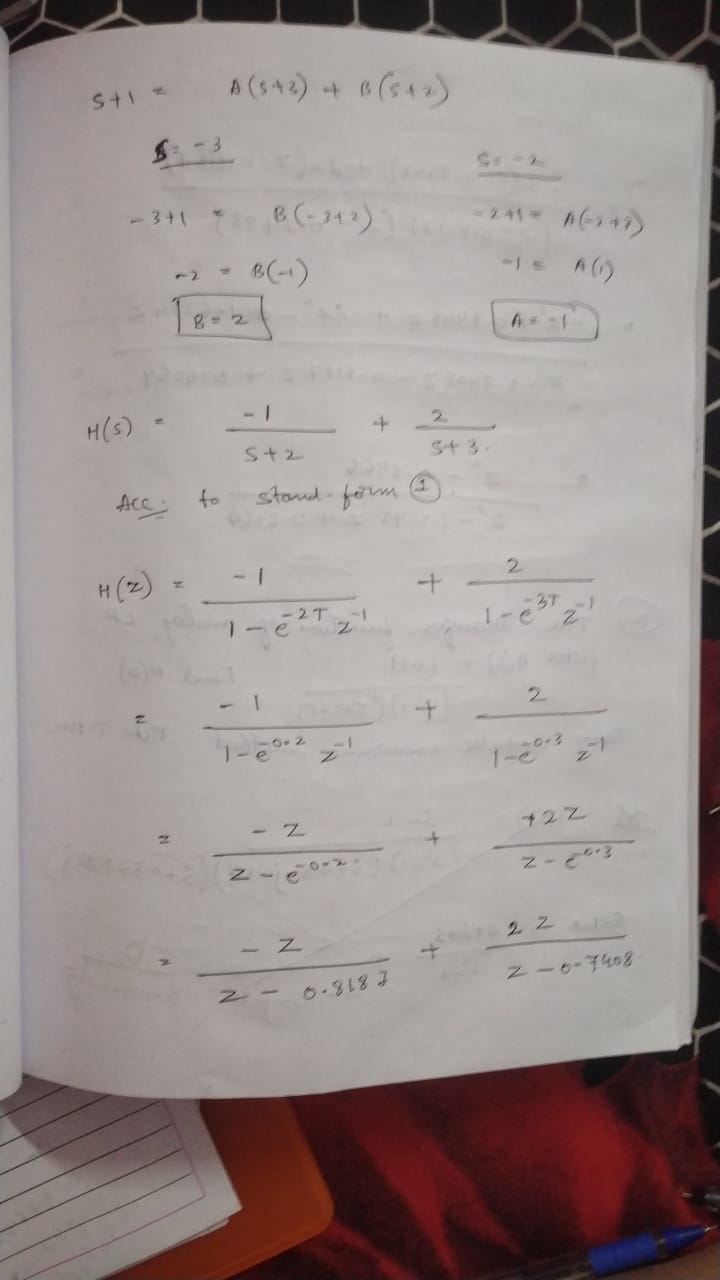 S+1 = A(S+3) + B(S+2)
S = -3
S = -2
-3+1 = B(-3+2)
-2+1 = A(-2+3)
-2 = B(-1)
-1 = A(1)
B = 2
A = -1
H(S) = -1 / S+2 + 2 / S+3.
Acc. to stand-form ①.
H(Z) = -1 / 1-e^-2T z^-1 + 2 / 1-e^-3T z^-1
= -1 / 1-e^-0.2 z^-1 + 2 / 1-e^-0.3 z^-1
= -Z / Z-e^-0.2 + +2Z / Z-e^-0.3
= -Z / Z - 0.8187 + 2Z / Z-0.7408